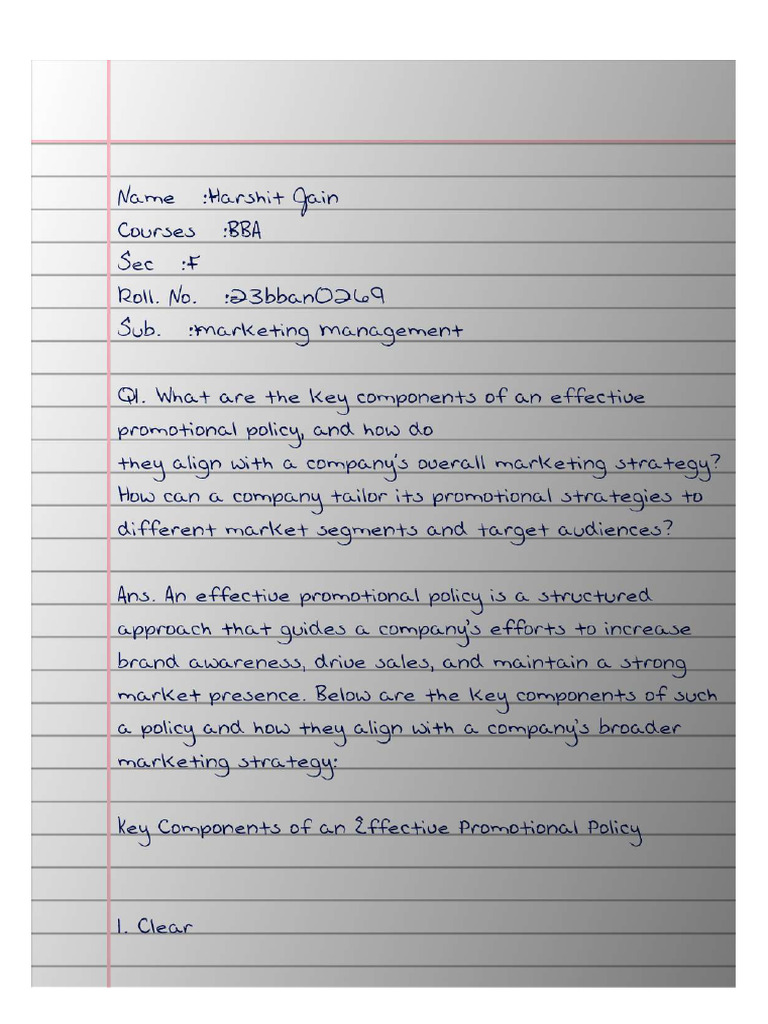 Name :Harshit Jain
Courses :BBA
Sec :F
Roll. No. :23bban0269
Sub. :marketing management
Q1. What are the key components of an effective
promotional policy, and how do
they align with a company's overall marketing strategy?
How can a company tailor its promotional strategies to
different market segments and target audiences?
Ans. An effective promotional policy is a structured
approach that guides a company's efforts to increase
brand awareness, drive sales, and maintain a strong
market presence. Below are the key components of such
a policy and how they align with a company's broader
marketing strategy:
Key Components of an Effective Promotional Policy
1. Clear